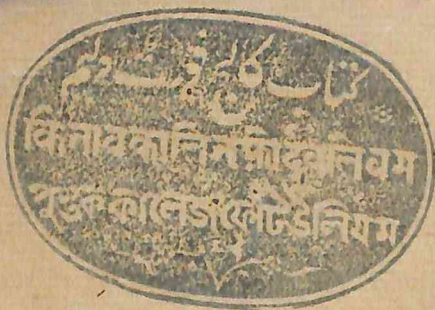 کتاب کالج فورٹ ولیم
किताव कालिज फोर्ट वलियम
পুস্তক কালেজ ফোর্ট উলিয়ম